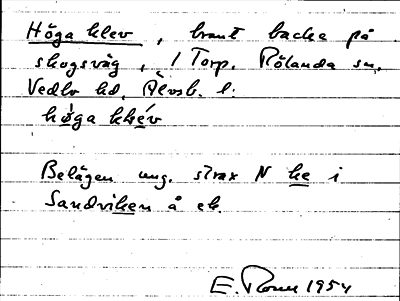 Höga klev, brant backe på
skogsväg, i Torp. Rölanda sn.
Vedbo hd, Älvsb. l.
hö́ga klév
Belägen ung. strax N ke i
Sandviken å ek.
E. 1954